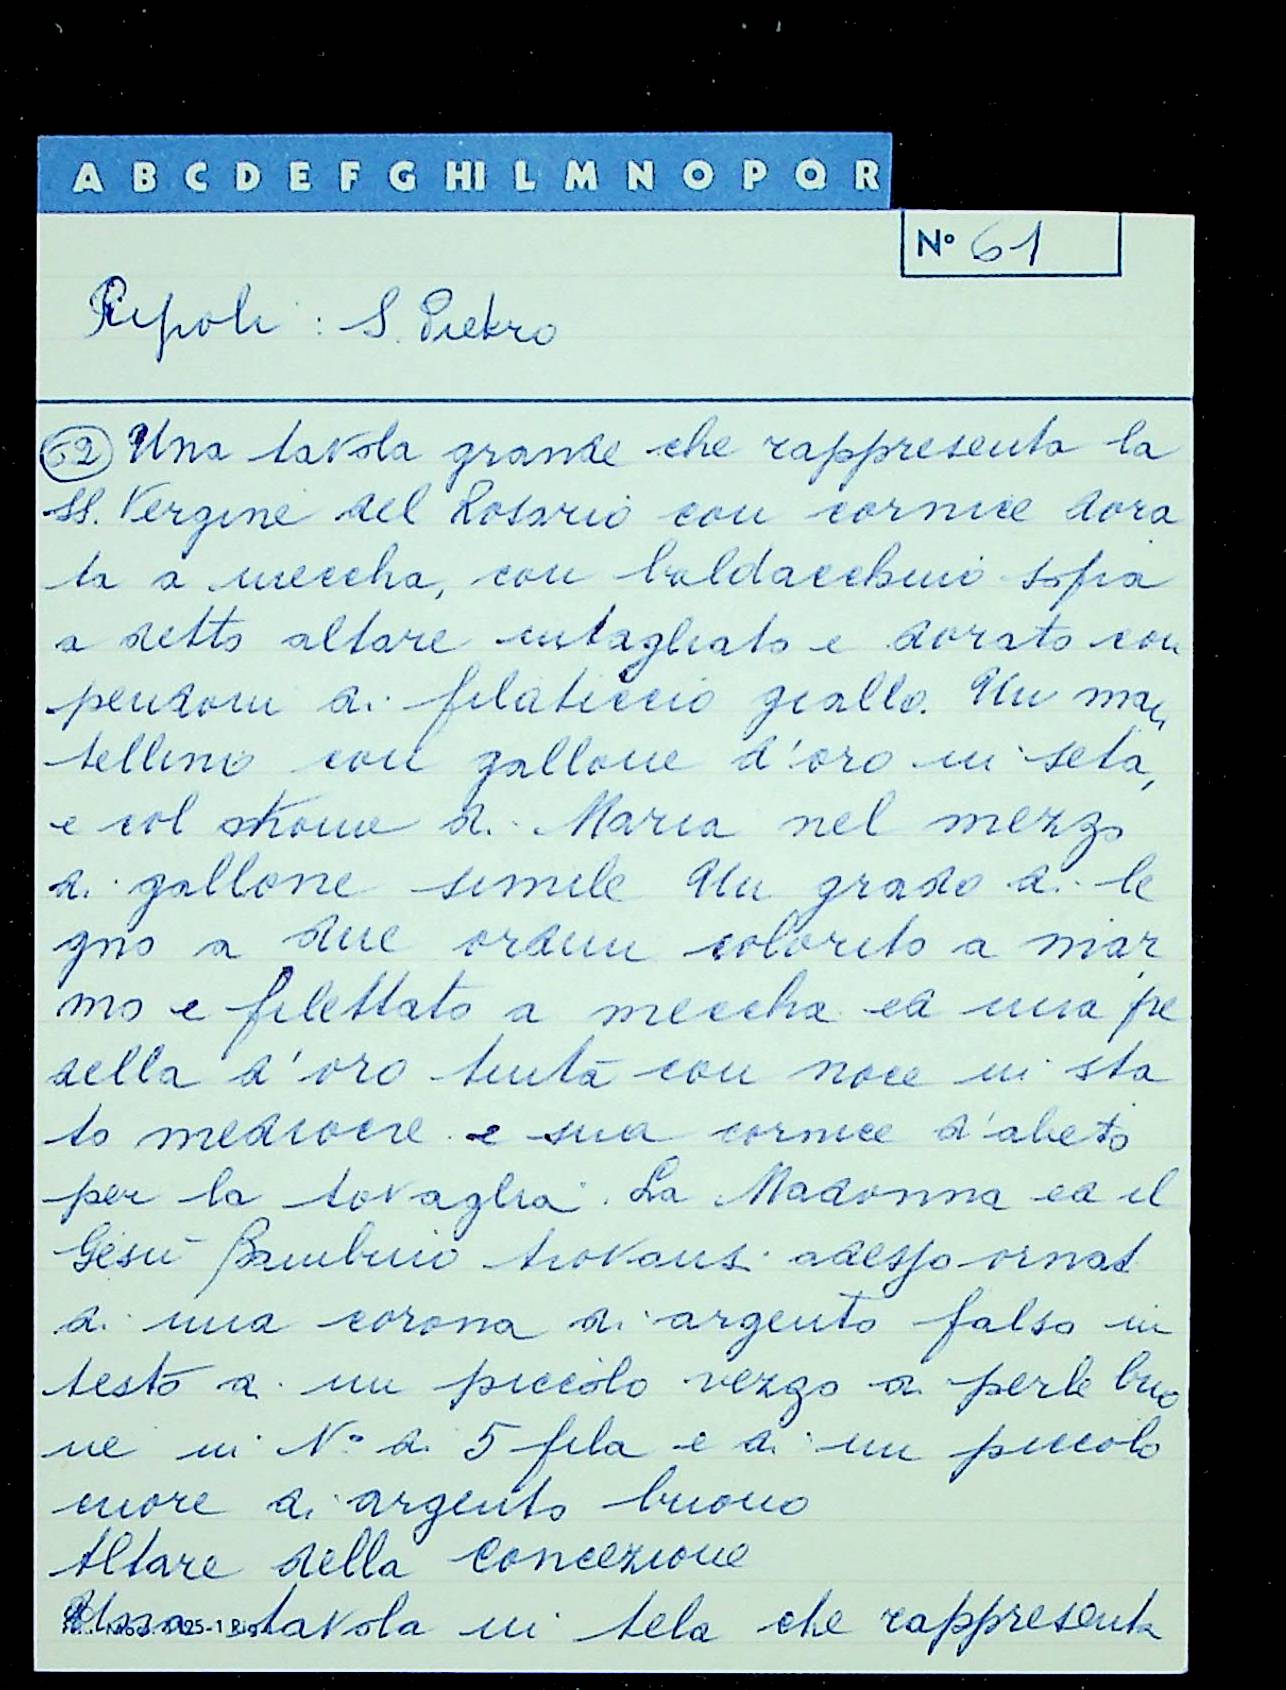 A B C D E F G HI L M N O P Q R
N° 61
Ripoli : S. Pietro
62 Una tavola grande che rappresenta la
SS. Vergine del Rosario con cornice dora
ta a meccha, con baldacchino sopra
a detto altare intagliato e dorato con
pendoni di filaticcio giallo. Un man
tellino con gallone d'oro in seta,
e col nome di Maria nel mezzo
di gallone simile Un grado di le
gno a due ordini colorito a mar
mo e filettato a meccha ed una pre
della d'oro tinta con noce in sta
to mediocre e sua cornice d'abeto
per la tovaglia. La Madonna ed il
Gesù Bambino trovansi adesso ornat
di una corona di argento falso in
testo di un piccolo vezzo di perle buo
ne in N° di 5 fila e di un piccolo
cuore di argento buono
Altare della Concezione
Una tavola in tela che rappresenta